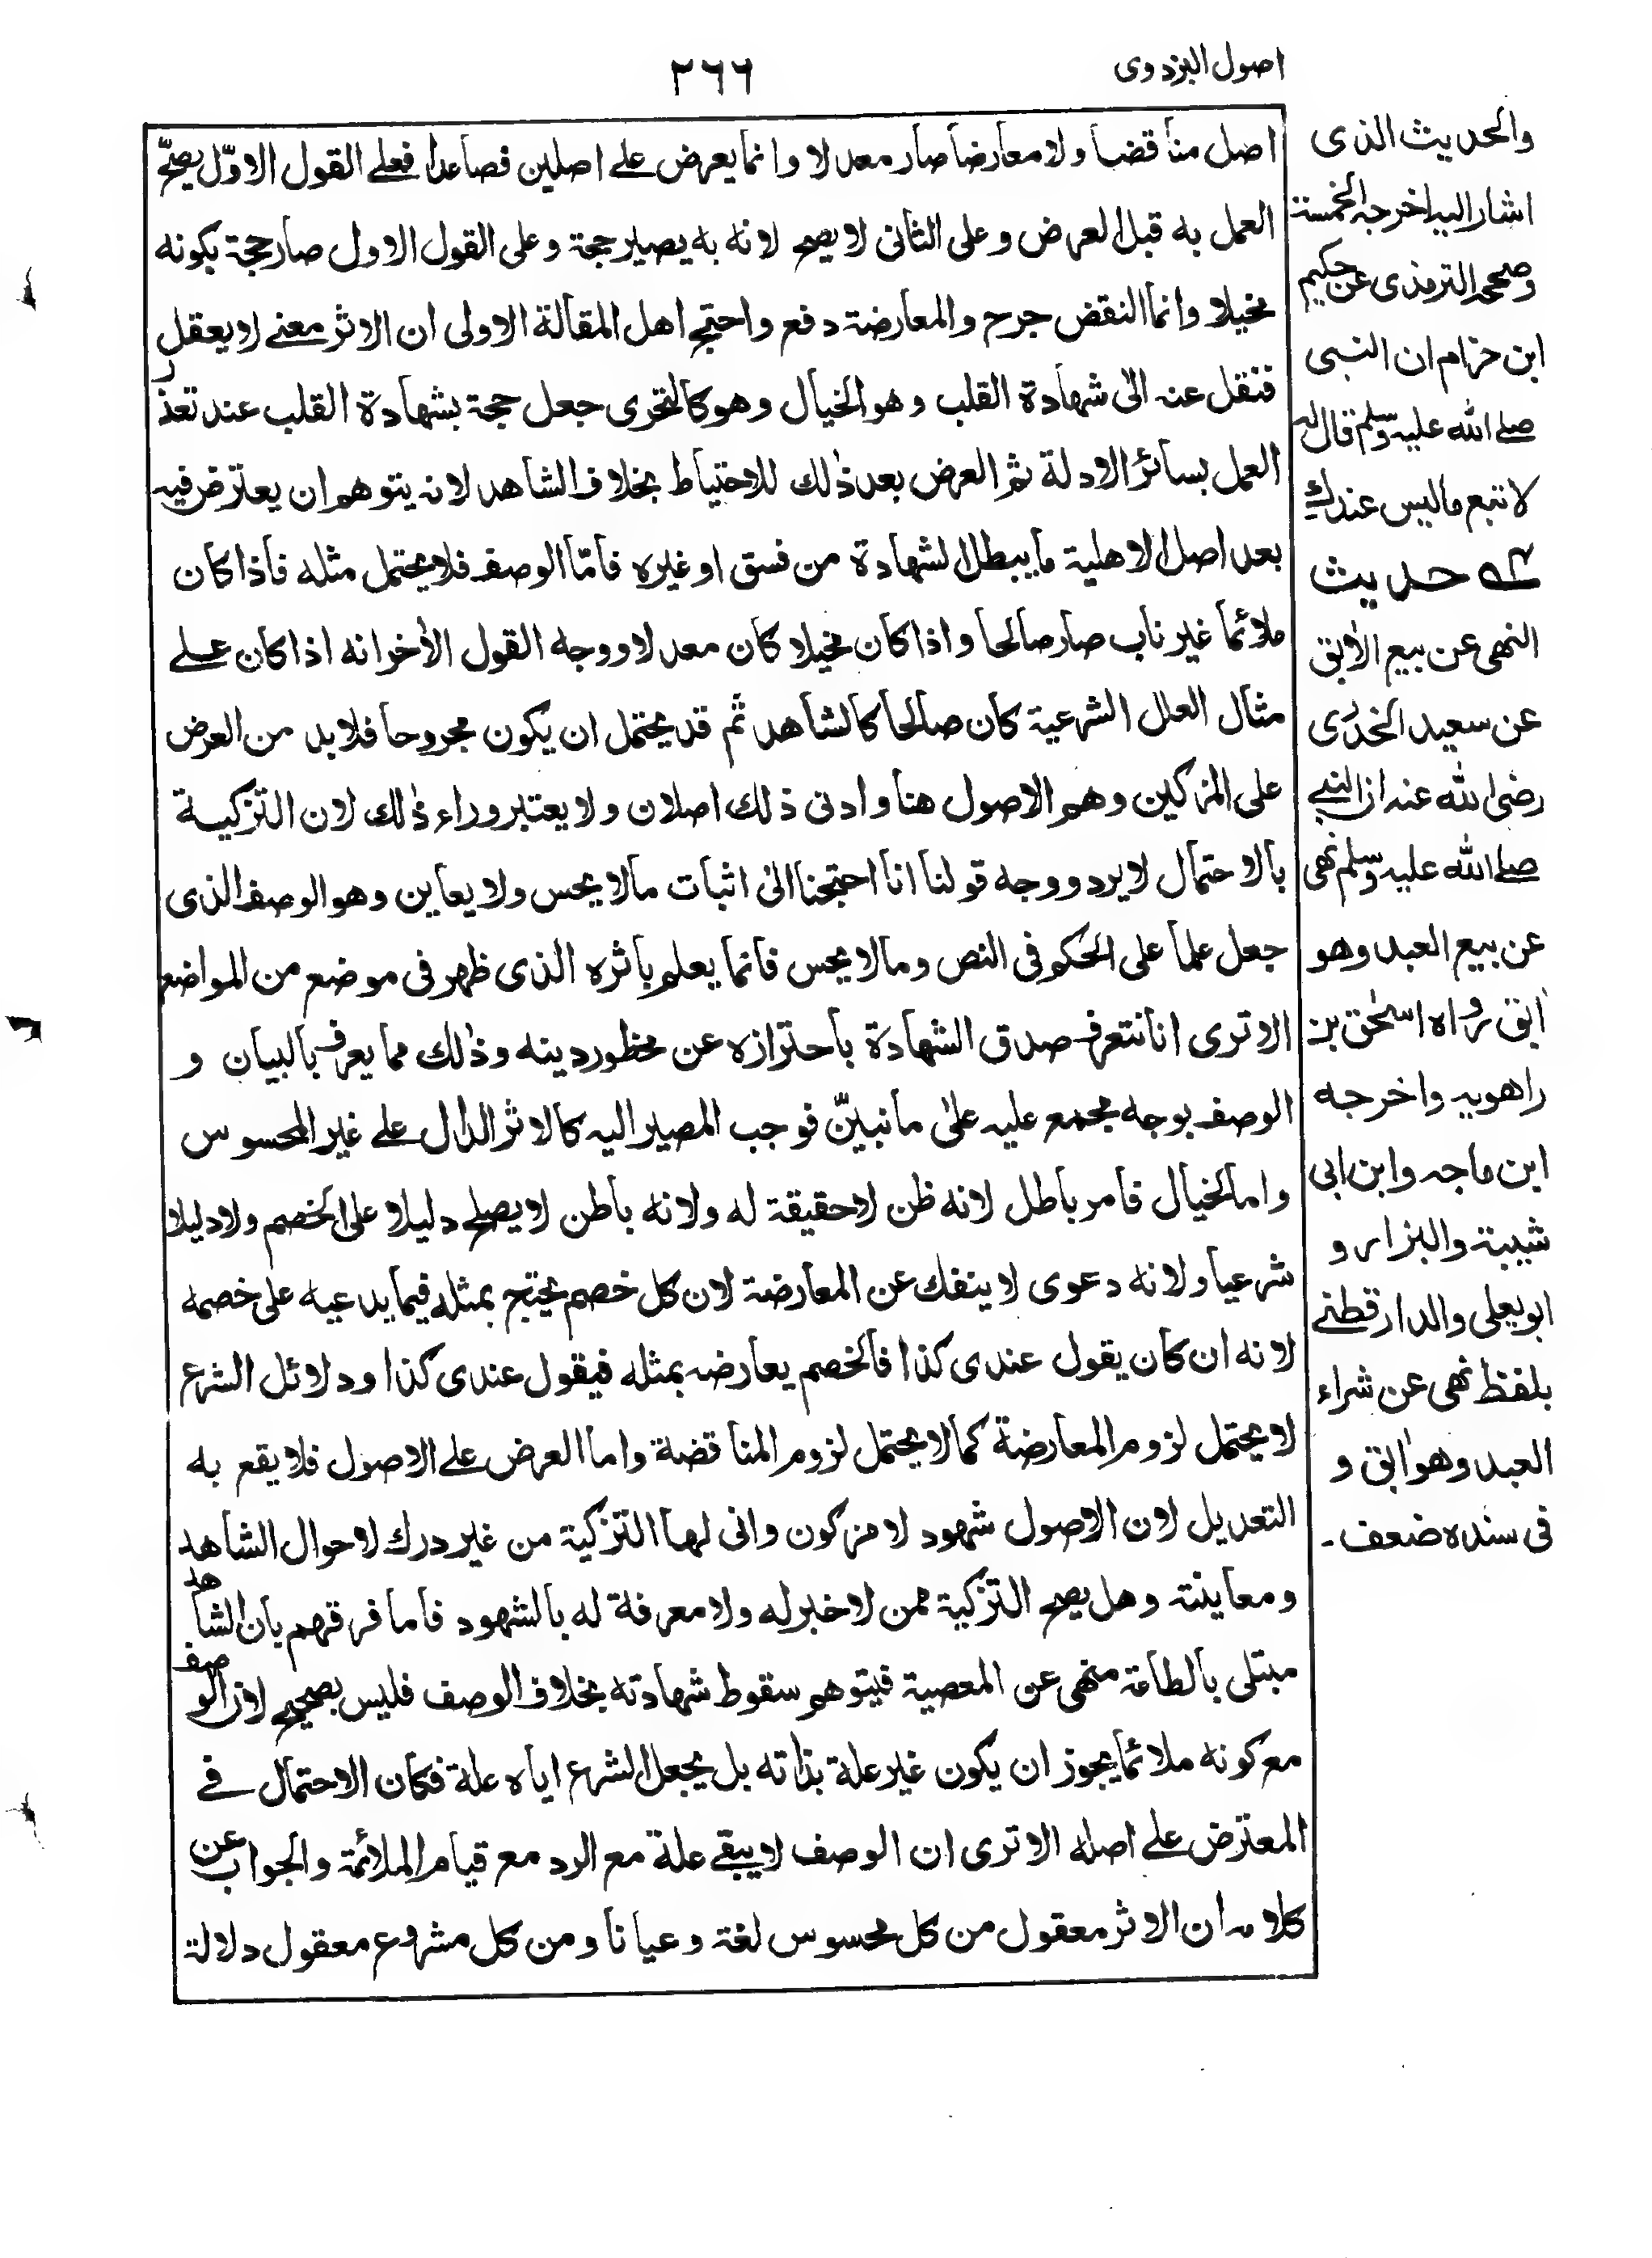 اصول البزدوی
٢٦٦
اصل مناقضا ولا معارضا صار معدلا وانما يعرض علے اصلين فصاعدا فعلے القول الاوّل يصحّ
العمل به قبل العرض وعلى الثانى لا يصح لانه به يصير حجة وعلى القول الاول صار حجة بكونه
مخيلا وانما النقض جرح والمعارضة دفع واحتج اهل المقالة الاولى ان الاثر معنے لا يعقل
فنقل عنه الى شهادة القلب وهو الخيال وهو كالتحرى جعل حجة بشهادة القلب عند تعذر
العمل بسائر الادلة ثم العرض بعد ذلك للاحتياط بخلاف الشاهد لانه يتوهم ان يعترض فيه
بعد اصل الاهلية ما يبطل الشهادة من فسق او غيره فامّا الوصف فلا يحتمل مثله فاذا كان
ملائما غير ناب صار صالحا واذا كان مخيلا كان معدلا ووجه القول الأخر انه اذا كان علے
مثال العلل الشرعية كان صالحا كالشاهد ثم قد يحتمل ان يكون مجروحا فلا بد من العرض
على المزكين وهم الاصول هنا وادنى ذلك اصلان ولا يعتبر وراء ذلك لان التزكية
بالاحتمال لا يرد ووجه قولنا انا احتجنا الى اثبات مالا يحس ولا يعاين وهو الوصف الذى
جعل علما على الحكم فى النص ومالا يحس فانما يعلم باثره الذى ظهر فى موضع من المواضع
الا ترى انا نتعرف صدق الشهادة باحترازه عن محظور دينه وذلك مما يعرف بالبيان و
الوصف بوجه مجمع عليه على ما نبينّ فوجب المصير اليه كالاثر الدال علے غير المحسوس
واما الخيال فامر باطل لانه ظن لا حقيقة له ولانه باطن لا يصلح دليلا على الخصم ولا دليلا
شرعيا ولانه دعوى لا ينفك عن المعارضة لان كل خصم يحتج بمثله فيما يدعيه على خصمه
لانه ان كان يقول عندى كذا فالخصم يعارضه بمثله فيقول عندى كذا ودلائل الشرع
لا يحتمل لزوم المعارضة كما لا يحتمل لزوم المناقضة واما العرض علے الاصول فلا يقع به
التعديل لان الاصول شهود لا مزكون وانى لها التزكية من غير درك لاحوال الشاهد
ومعاينة وهل يصح التزكية ممن لا خبر له ولا معرفة له بالشهود فاما فرقهم بان الشاهد
مبتلى بالطاعة منهى عن المعصية فيتوهم سقوط شهادته بخلاف الوصف فليس بصحيح لان الوصف
مع كونه ملائما يجوز ان يكون غير علة بذاته بل يجعل الشرع اياه علة فكان الاحتمال فے
المعترض علے اصله الا ترى ان الوصف لا يبقے علة مع الرد مع قيام الملائمة والجواب عن
كلامه ان الاثر معقول من كل محسوس لغة وعيانا ومن كل مشروع معقول دلالة
والحديث الذى
اشار اليه اخرجه الخمسة
وصححه الترمذى عن حكيم
ابن حزام ان النبى
صلے الله عليه وسلم قال له
لا تبع ما ليس عندك
حديث
النهى عن بيع الأبق
عن سعيد الخدرى
رضى الله عنه ان النبے
صلے الله عليه وسلم نهى
عن بيع العبد وهو
ابق رواه اسحٰق بن
راهويه واخرجه
ابن ماجه وابن ابى
شيبة والبزار و
ابو يعلى والدارقطنے
بلفظ نهى عن شراء
العبد وهو ابق و
فى سنده ضعف ـ